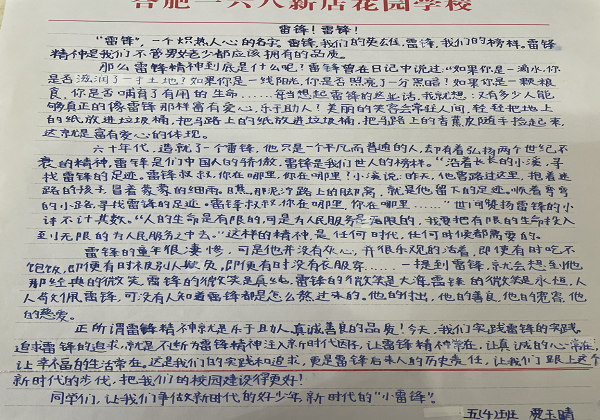 合肥一六八新店花园学校
雷锋！雷锋！
"雷锋"，一个炽热人心的名字，雷锋，我们的英雄，雷锋，我们的榜样。雷锋
精神是我们不管男女老少都应该拥有的品质。
那么雷锋精神到底是什么呢？雷锋曾在日记中说过："如果你是一滴水，你
是否滋润了一寸土地？如果你是一线阳光，你是否照亮了一分黑暗？如果你是一颗粮
食，你是否哺育了有用的生命……每当想起雷锋的这些话，我就想：又有多少人能
够真正的像雷锋那样富有爱心，乐于助人！美丽的笑容会常驻人间，轻轻把地上
的纸放进垃圾桶，把马路上的纸放进垃圾桶，把马路上的香蕉皮随手捡起来，
这就是富有爱心的体现。
六十年代，造就了一个雷锋，他只是一个平凡而普通的人，却有着弘扬两个世纪不
衰的精神，雷锋是们中国人的骄傲，雷锋是我们世人的榜样。"沿着长长的小溪，寻
找雷锋的足迹。雷锋叔叔，你在哪里，你在哪里？小溪说：昨天，他曾路过这里，抱着迷
路的孩子，冒着蒙蒙的细雨。瞧，那泥泞路上的脚窝，就是他留下的足迹。顺着弯弯
的小路，寻找雷锋的足迹。雷锋叔叔，你在哪里，你在哪里……"世间赞扬雷锋的小
诗不计其数。"人的生命是有限的，可是为人民服务是无限的，我要把有限的生命投入
到无限的为人民服务之中去。"这样的精神，是任何时代，任何时候都需要的。
雷锋的童年很凄惨，可是他并没有灰心，并很乐观的活着，即使有时吃不
饱饭，即便有时被别人欺负，即便有时没有衣服穿……一提到雷锋，就会想到他
那经典的微笑，雷锋的微笑是真纯，雷锋的微笑是大海，雷锋的微笑是永恒，人
人敬佩雷锋，可没有人知道雷锋都是怎么熬过来的，他的付出，他的善良，他的宽容，他
的热爱。
正所谓雷锋精神就是乐于助人，真诚善良的品质！今天，我们实践雷锋的实践，
追求雷锋的追求，就是不断为雷锋精神注入新时代因子，让雷锋精神常在，让真诚的心常在，
让幸福的生活常在。这是我们的实践和追求，更是雷锋后来人的历史责任，让我们跟上这个
新时代的步伐，把我们的校园建设得更好！
同学们，让我们争做新时代的好少年，新时代的"小雷锋"。
五(4)班 贾玉晴